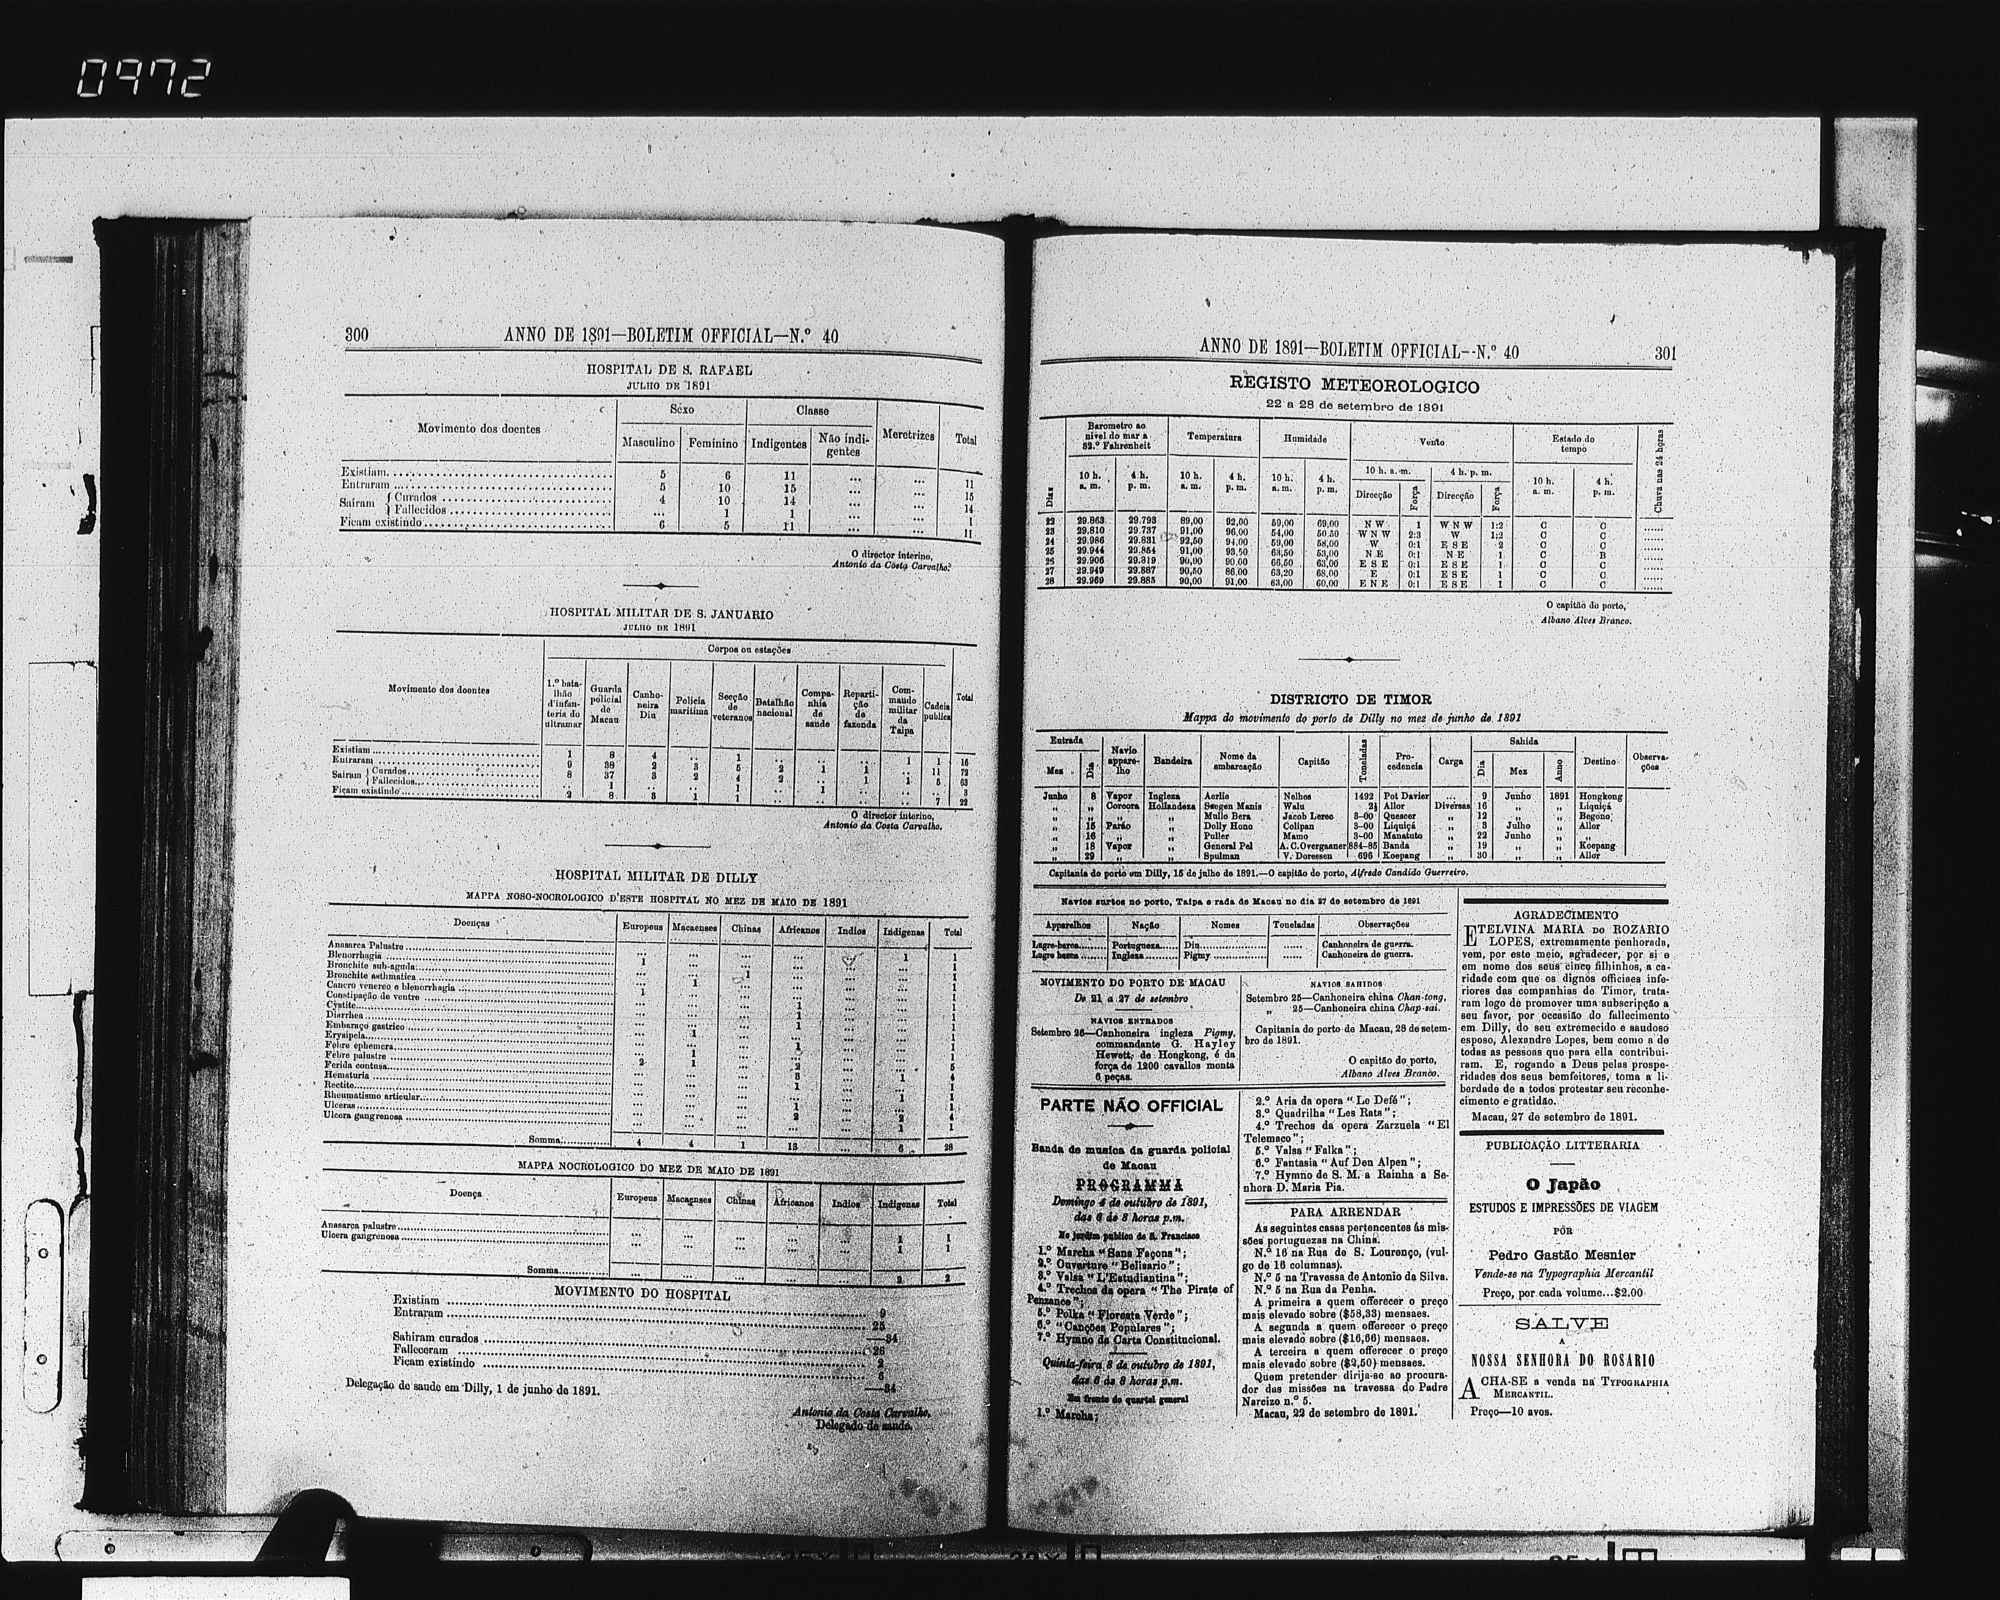 0972
300 ANNO DE 1891—BOLETIM OFFICIAL—N.º 40
HOSPITAL DE S. RAFAEL
JULHO DE 1891
Movimento dos doentes Sexo Classe Meretrizes Total
Masculino Feminino Indigentes Não indigentes
Existiam 5 6 11 ... ... 11
Entraram 5 10 15 ... ... 15
Sairam { Curados 4 10 14 ... ... 14
{ Fallecidos ... 1 1 ... ... 1
Ficam existindo 6 5 11 ... ... 11
O director interino,
Antonio da Costa Carvalho.
HOSPITAL MILITAR DE S. JANUARIO
JULHO DE 1891
Movimento dos doentes Corpos ou estações Total
1.º batalhão d'infanteria do ultramar Guarda policial de Macau Canhoneira Diu Policia maritima Secção de veteranos Batalhão nacional Companhia de saude Repartição de fazenda Commando militar da Taipa Cadeia publica
Existiam 1 8 4 .. 1 .. .. .. 1 1 16
Entraram 9 38 2 3 5 2 1 1 .. 11 72
Sairam { Curados 8 37 3 2 4 2 .. 1 1 5 63
{ Fallecidos .. 1 .. .. 1 .. 1 .. .. .. 3
Ficam existindo 2 8 3 1 1 .. .. .. .. 7 22
O director interino,
Antonio da Costa Carvalho.
HOSPITAL MILITAR DE DILLY
MAPPA NOSO-NOCROLOGICO D'ESTE HOSPITAL NO MEZ DE MAIO DE 1891
Doenças Europeus Macaenses Chinas Africanos Indios Indigenas Total
Anasarca Palustre
Blenorrhagia
Bronchite sub-aguda
Bronchite asthmatica
Cancro venereo e blenorrhagia
Constipação de ventre
Cystite
Diarrhea
Embaraço gastrico
Erysipela
Febre ephemera
Febre palustre
Ferida contusa
Hematuria
Rectite
Rheumatismo articular
Ulceras
Ulcera gangrenosa
Somma 4 4 1 13 ... 6 28
MAPPA NOCROLOGICO DO MEZ DE MAIO DE 1891
Doença Europeus Macaenses Chinas Africanos Indios Indigenas Total
Anasarca palustre ... ... ... ... ... 1 1
Ulcera gangrenosa ... ... ... ... ... 1 1
Somma ... ... ... ... ... 2 2
MOVIMENTO DO HOSPITAL
Existiam 9
Entraram 25
—34
Sahiram curados 26
Falleceram 2
Ficam existindo 6
—34
Delegação de saude em Dilly, 1 de junho de 1891.
Antonio da Costa Carvalho,
Delegado de saude.
ANNO DE 1891—BOLETIM OFFICIAL--N.º 40 301
REGISTO METEOROLOGICO
22 a 28 de setembro de 1891
Dias Barometro ao nivel do mar a 32.º Fahrenheit Temperatura Humidade Vento Estado do tempo Chuva nas 24 horas
10 h. a. m. 4 h. p. m. 10 h. a. m. 4 h. p. m. 10 h. a. m. 4 h. p. m. 10 h. a. m. 4 h. p. m. 10 h. a. m. 4 h. p. m.
Direcção Força Direcção Força
22 29.863 29.793 89,00 92,00 59,00 69,00 N W 1 W N W 1:2 C C ......
23 29.810 29.737 91,00 96,00 54,00 50,50 W N W 2:3 W 1:2 C C ......
24 29.986 29.831 92,50 94,00 59,00 58,00 W 0:1 E S E 2 C C ......
25 29.944 29.854 91,00 93,50 63,50 53,00 N E 0:1 N E 1 C B ......
26 29.906 29.819 90,00 90,00 66,50 63,00 E S E 0:1 E S E 1 C C ......
27 29.949 29.887 90,50 86,00 63,20 68,00 E 0:1 E S E 1 C C ......
28 29.969 29.885 90,00 91,00 63,00 60,00 E N E 0:1 E S E 1 C C ......
O capitão do porto,
Albano Alves Branco.
DISTRICTO DE TIMOR
Mappa do movimento do porto de Dilly no mez de junho de 1891
Entrada Navio apparelho Bandeira Nome da embarcação Capitão Toneladas Procedencia Carga Sahida Destino Observações
Mez Dia Dia Mez Anno
Junho 8 Vapor Ingleza Aerlie Nelhos 1492 Pot Davier ... 9 Junho 1891 Hongkong
„ „ Corcora Hollandeza Seegen Manis Walu 2½ Allor Diversas 16 „ „ Liquiçá
„ „ „ „ Mullo Bera Jacob Leroo 3-00 Quescer „ 12 „ „ Begono
„ 15 Paráo „ Dolly Hono Colipan 3-00 Liquiçá „ 3 Julho „ Allor
„ 16 „ „ Puller Mamo 3-00 Manatuto „ 22 Junho „
„ 18 Vapor „ General Pel A. C. Overgaaner 884-85 Banda „ 19 „ „ Koepang
„ 29 „ „ Spulman V. Doressen 696 Koepang „ 30 „ „ Allor
Capitania do porto em Dilly, 15 de julho de 1891.—O capitão do porto, Alfredo Candido Guerreiro.
Navios surtos no porto, Taipa e rada de Macau no dia 27 de setembro de 1891
Apparelhos Nação Nomes Toneladas Observações
Lugre-barca Portugueza Diu ...... Canhoneira de guerra.
Lugre barca Ingleza Pigmy ...... Canhoneira de guerra.
MOVIMENTO DO PORTO DE MACAU
De 21 a 27 de setembro
NAVIOS ENTRADOS
Setembro 26—Canhoneira ingleza Pigmy,
commandante G. Hayley
Hewett, de Hongkong, é da
força de 1200 cavallos monta
6 peças.
NAVIOS SAHIDOS
Setembro 25—Canhoneira china Chan-tong,
„ 25—Canhoneira china Chap-sai.
Capitania do porto de Macau, 28 de setem-
bro de 1891.
O capitão do porto,
Albano Alves Branco.
PARTE NÃO OFFICIAL
Banda de musica da guarda policial
de Macau
PROGRAMMA
Domingo 4 de outubro de 1891,
das 6 ás 8 horas p.m.
No jardim publico de S. Francisco
1.º Marcha "Sans Façons";
2.º Ouverture "Belisario";
3.º Valsa "L'Estudiantina";
4.º Trechos da opera "The Pirate of
Penzance";
5.º Polka "Floresta Verde";
6.º "Canções Populares";
7.º Hymno da Carta Constitucional.
Quinta-feira 8 de outubro de 1891,
das 6 ás 8 horas p.m.
Em frente do quartel general
1.º Marcha;
2.º Aria da opera "Le Defé";
3.º Quadrilha "Les Rats";
4.º Trechos da opera Zarzuela "El
Telemaco";
5.º Valsa "Falka";
6.º Fantasia "Auf Den Alpen";
7.º Hymno de S. M. a Rainha a Se-
nhora D. Maria Pia.
PARA ARRENDAR
As seguintes casas pertencentes ás mis-
sões portuguezas na China.
N.º 16 na Rua de S. Lourenço, (vul-
go de 16 columnas).
N.º 5 na Travessa de Antonio da Silva.
N.º 5 na Rua da Penha.
A primeira a quem offerecer o preço
mais elevado sobre ($58,33) mensaes.
A segunda a quem offerecer o preço
mais elevado sobre ($16,66) mensaes.
A terceira a quem offerecer o preço
mais elevado sobre ($2,50) mensaes.
Quem pretender dirija-se ao procura-
dor das missões na travessa do Padre
Narcizo n.º 5.
Macau, 22 de setembro de 1891.
AGRADECIMENTO
ETELVINA MARIA DO ROZARIO
LOPES, extremamente penhorada,
vem, por este meio, agradecer, por si e
em nome dos seus cinco filhinhos, a ca-
ridade com que os dignos officiaes infe-
riores das companhias de Timor, trata-
ram logo de promover uma subscripção a
seu favor, por occasião do fallecimento
em Dilly, do seu extremecido e saudoso
esposo, Alexandre Lopes, bem como a de
todas as pessoas que para ella contribui-
ram. E, rogando a Deus pelas prospe-
ridades dos seus bemfeitores, toma a li-
berdade de a todos protestar seu reconhe-
cimento e gratidão.
Macau, 27 de setembro de 1891.
PUBLICAÇÃO LITTERARIA
O Japão
ESTUDOS E IMPRESSÕES DE VIAGEM
POR
Pedro Gastão Mesnier
Vende-se na Typographia Mercantil
Preço, por cada volume...$2.00
SALVE
A
NOSSA SENHORA DO ROSARIO
ACHA-SE a venda na TYPOGRAPHIA
MERCANTIL.
Preço—10 avos.